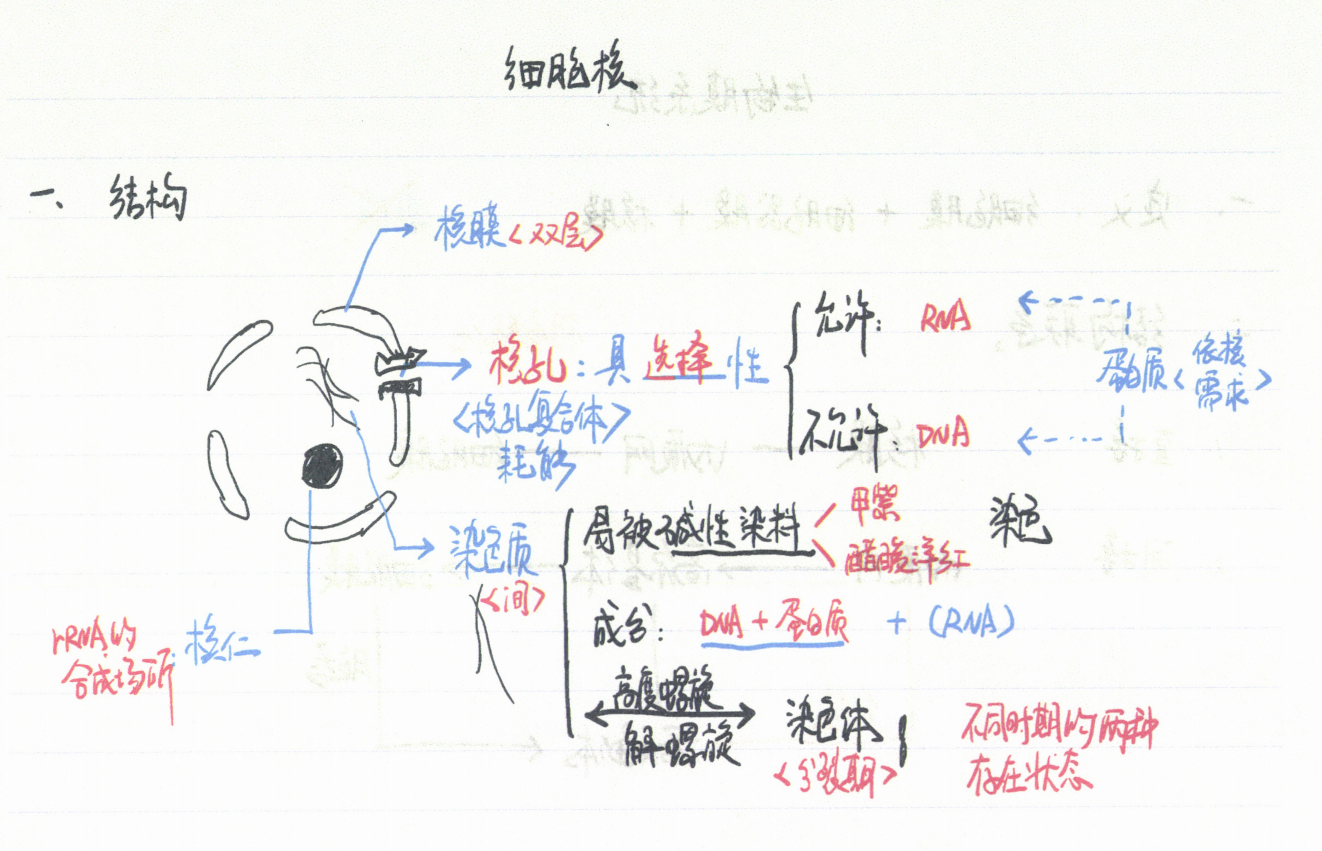 细胞核
一、 结构
核膜<双层>
核孔:具选择性
<核孔复合体>
耗能
允许: RNA
不允许: DNA
蛋白质<依核需求>
染色质
<间>
易被碱性染料 甲紫 醋酸洋红 染色
成分: DNA+蛋白质 + (RNA)
高度螺旋
解螺旋
染色体
<分裂期>
不同时期的两种
存在状态
核仁:
rRNA的
合成场所